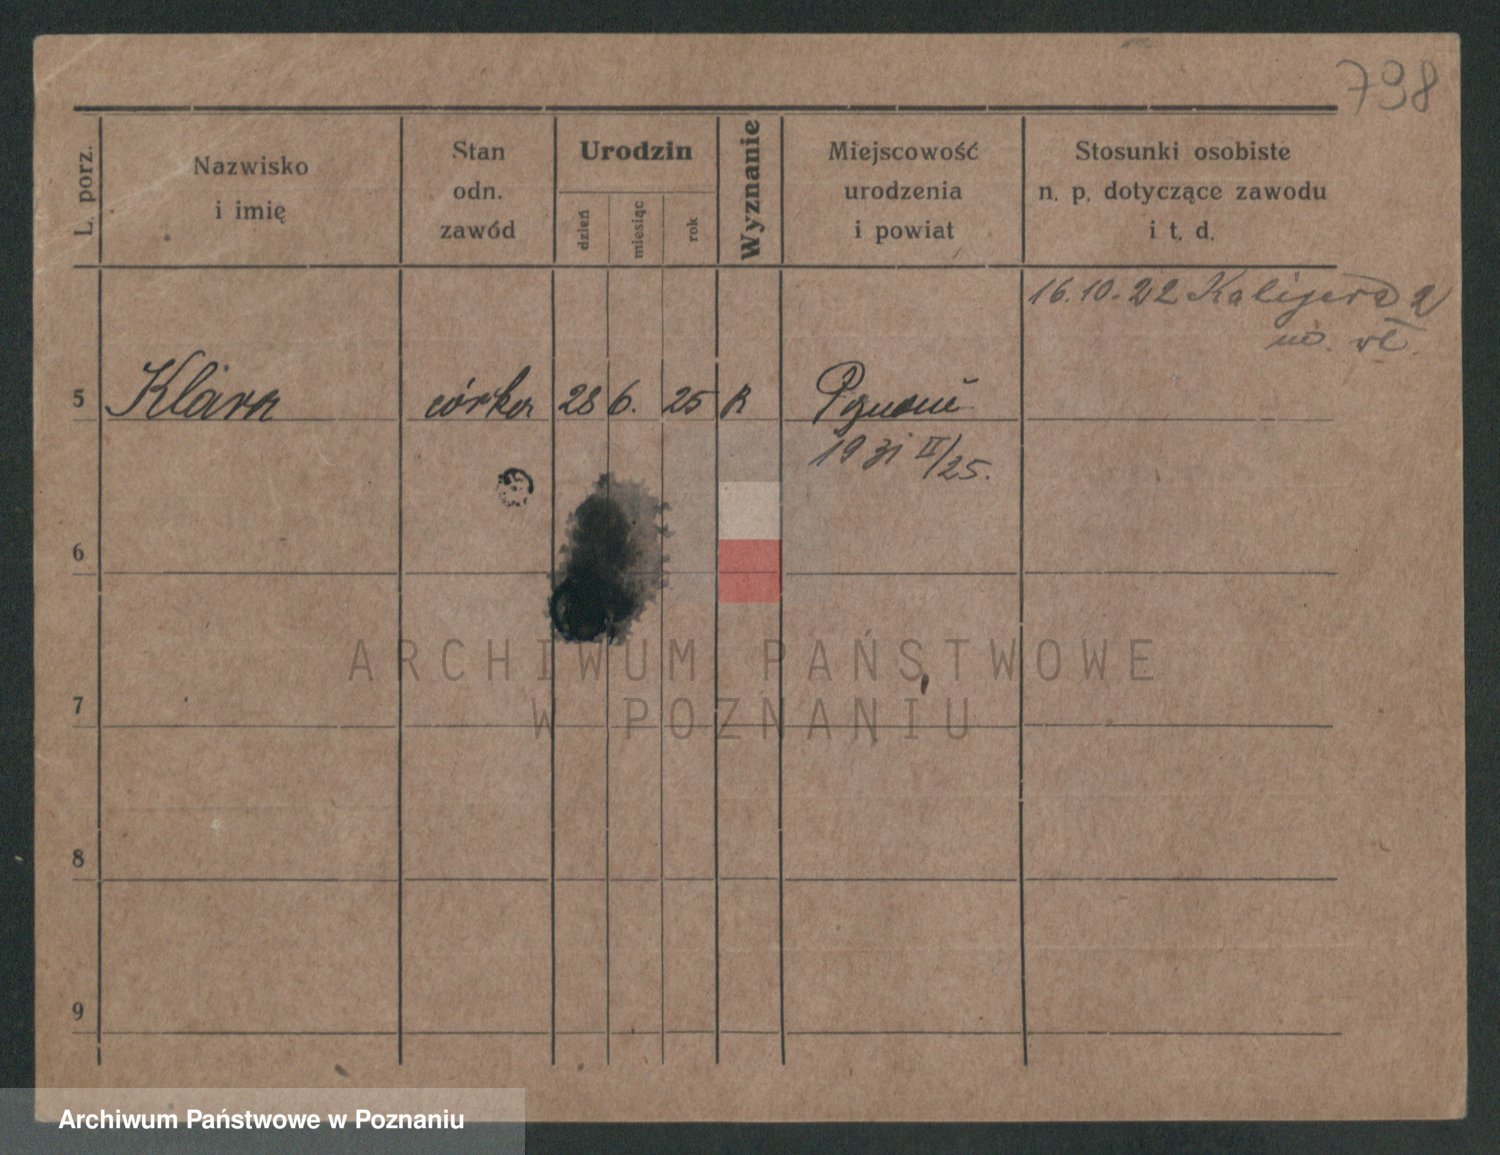 798
L. porz.
Nazwisko
i imię
Stan
odn.
zawód
Urodzin
dzień
miesiąc
rok
Wyznanie
Miejscowość
urodzenia
i powiat
Stosunki osobiste
n. p. dotyczące zawodu
i t. d.
16.10.22
5 Klara córka 28 6. 25 R Poznań
1931 II/25.
6
ARCHIWUM PAŃSTWOWE
W POZNANIU
7
8
9
Archiwum Państwowe w Poznaniu